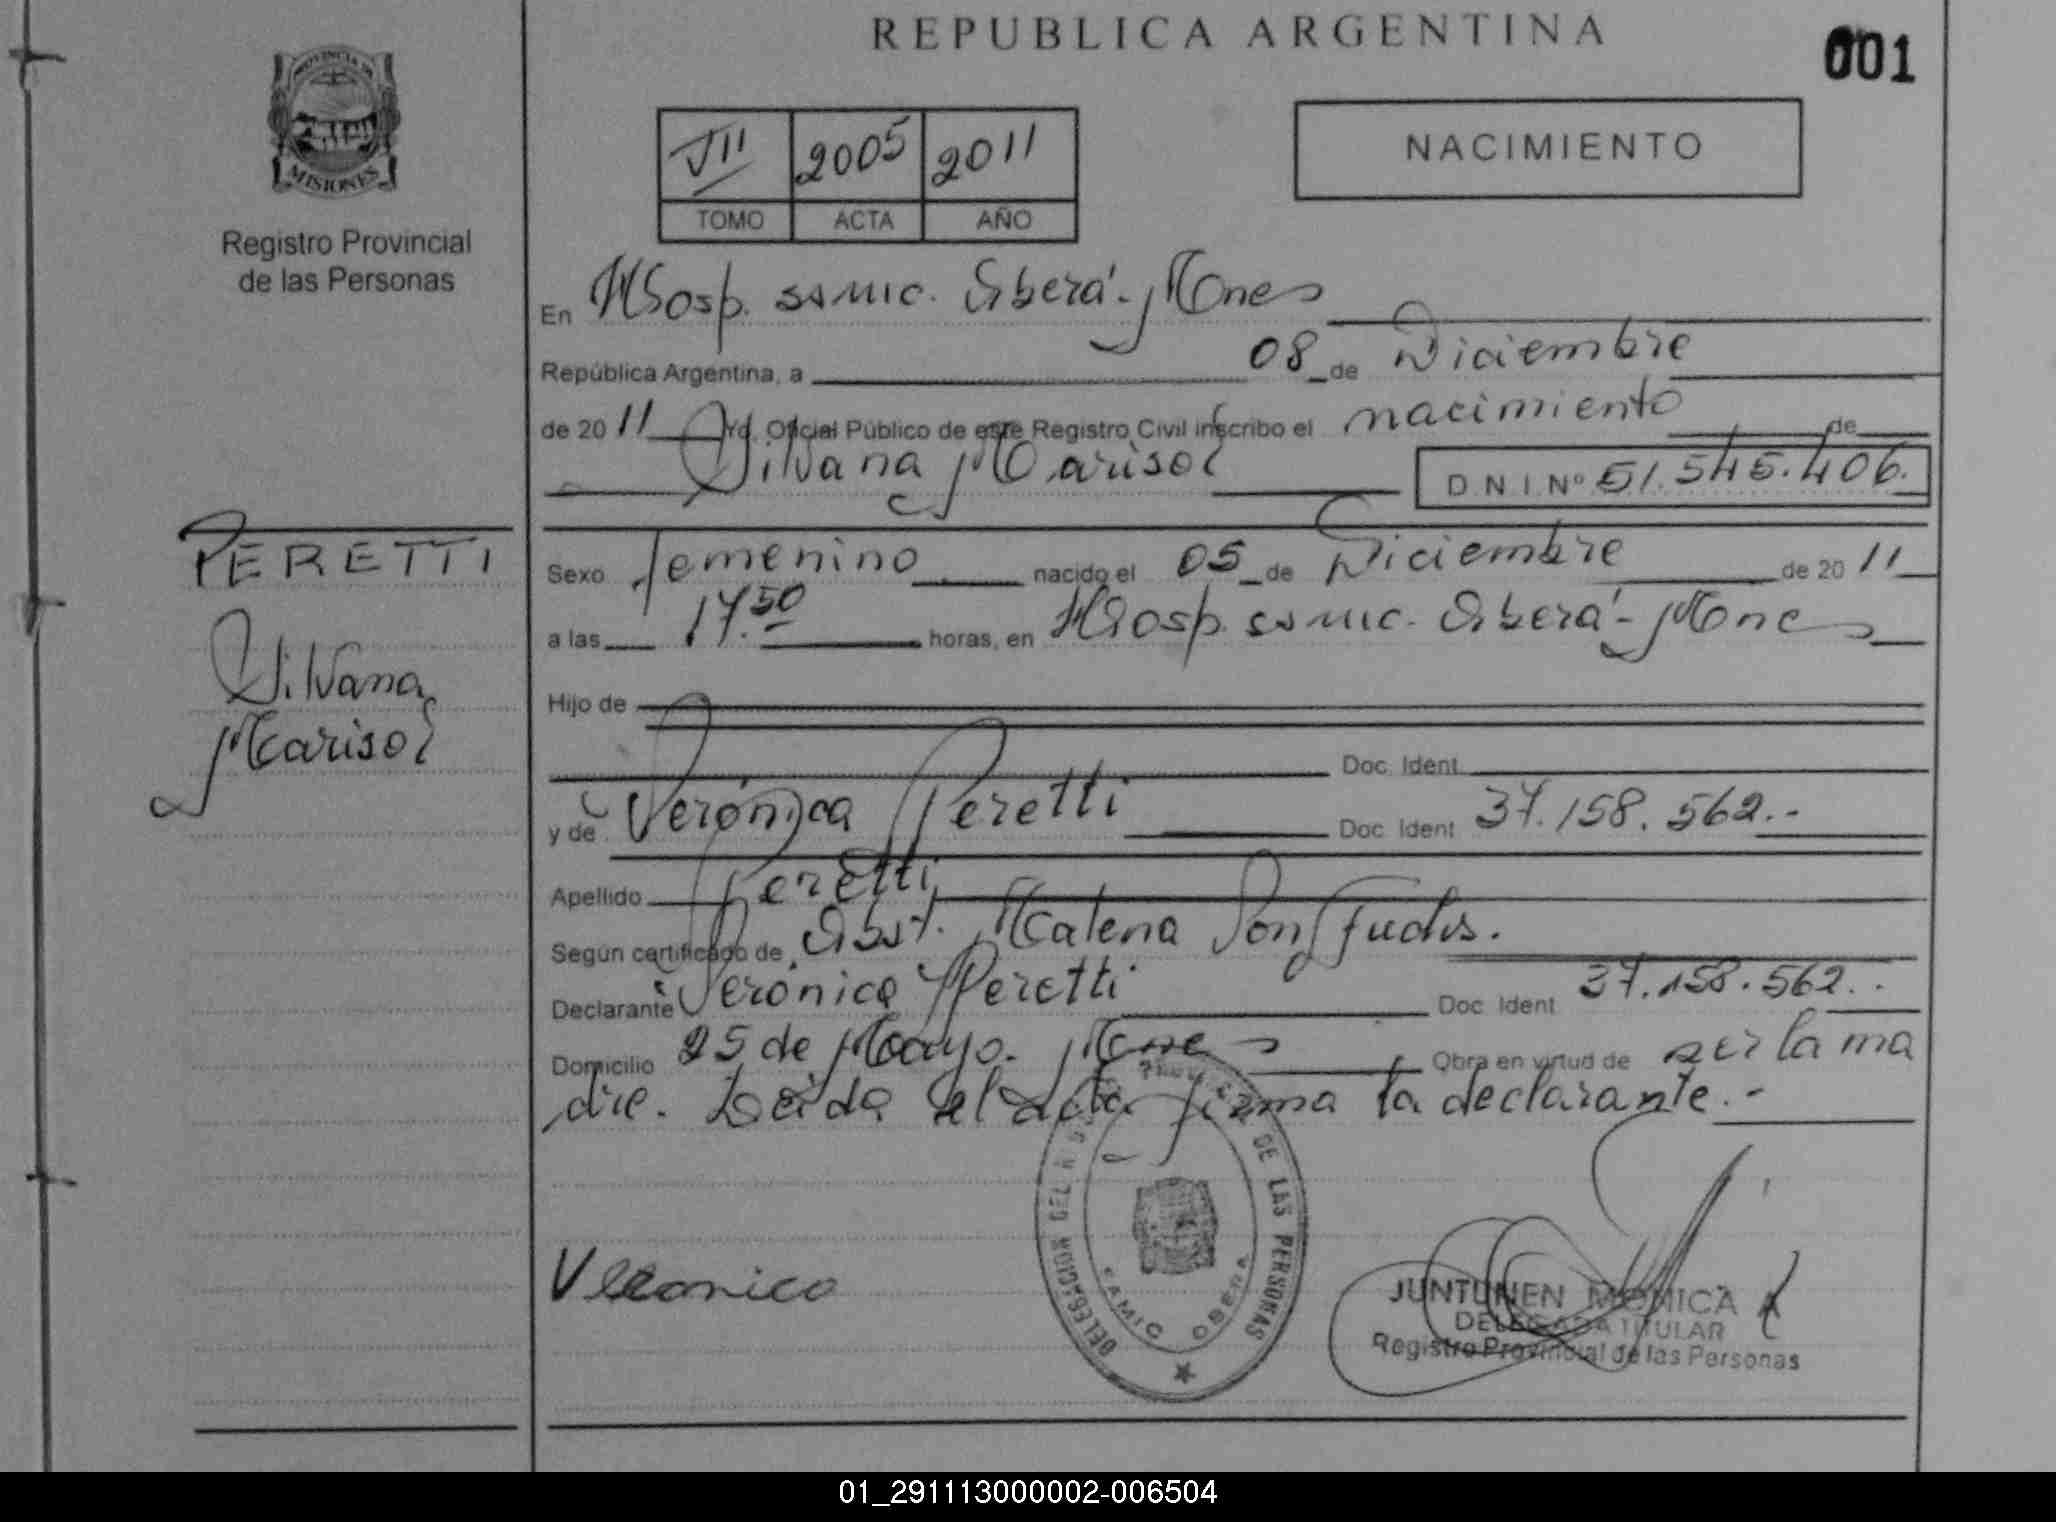 REPUBLICA ARGENTINA
001
PROVINCIA DE
MISIONES
Registro Provincial
de las Personas
VII 2005 2011
TOMO ACTA AÑO
NACIMIENTO
En Hosp. samic. Oberá - Mones
República Argentina, a 08 de Diciembre
de 2011 Yo, Oficial Público de este Registro Civil inscribo el nacimiento de
Silvana Marisol D.N.I. Nº 51.545.406.
PERETTI
Silvana
Marisol
Sexo femenino nacido el 05 de Diciembre de 2011
a las 17.50 horas, en Hosp. samic. Oberá - Mones
Hijo de
Doc. Ident.
y de Verónica Peretti Doc. Ident. 37.158.562.-
Apellido Peretti
Según certificado de Obst. Malena
Declarante Verónica Peretti Doc. Ident. 37.158.562.
Domicilio 25 de Mayo. Mones Obra en virtud de ser la ma
dre. Leída el acta firma la declarante.-
Veronica
DE LAS PERSONAS
DELEGACION DEL
SAMIC OBERA
JUNTUNEN MONICA
DELEGADA TITULAR
Registro Provincial de las Personas
01_291113000002-006504